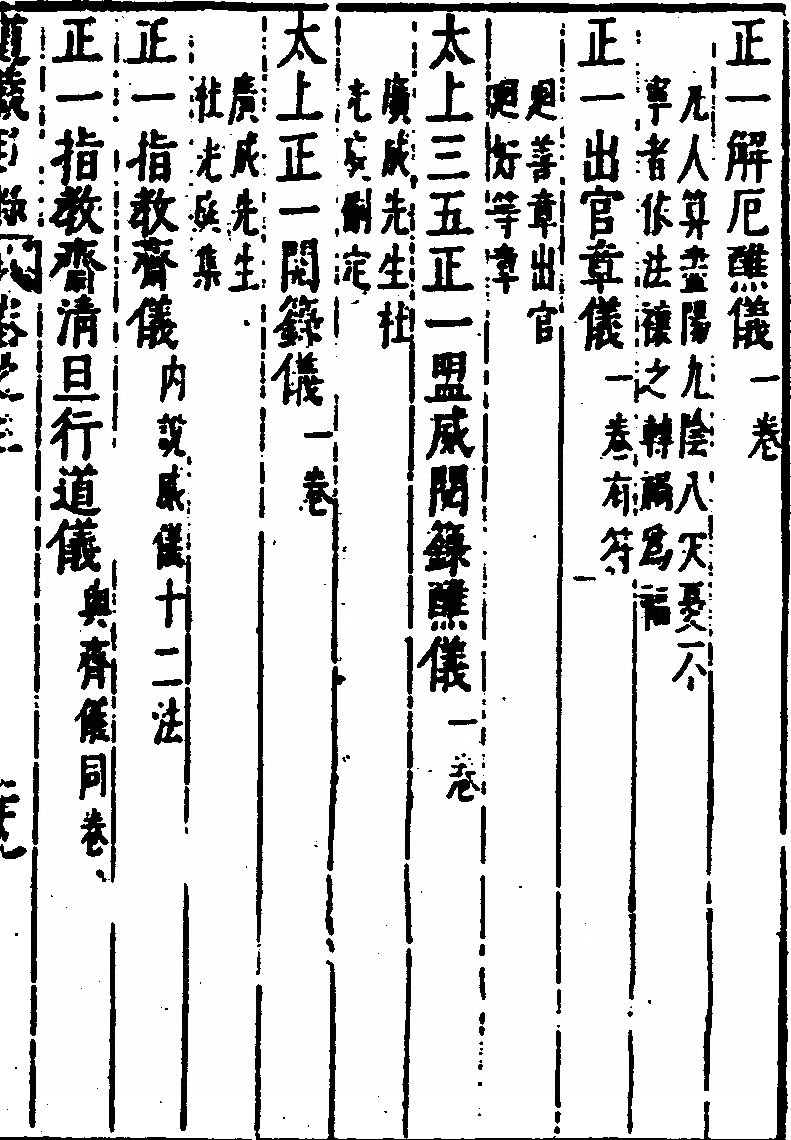 正一解厄醮儀一卷
凡人算盡陽九陰八灾憂不
寧者依法禳之轉禍爲福
正一出官章儀一卷有符
廻善章出官
廻好等章
太上三五正一盟威閱籙醮儀一卷
廣成先生杜
光庭刪定
太上正一閱籙儀一卷
廣成先生
杜光庭集
正一指教齋儀内說威儀十二法
正一指教齋清旦行道儀與齋儀同卷